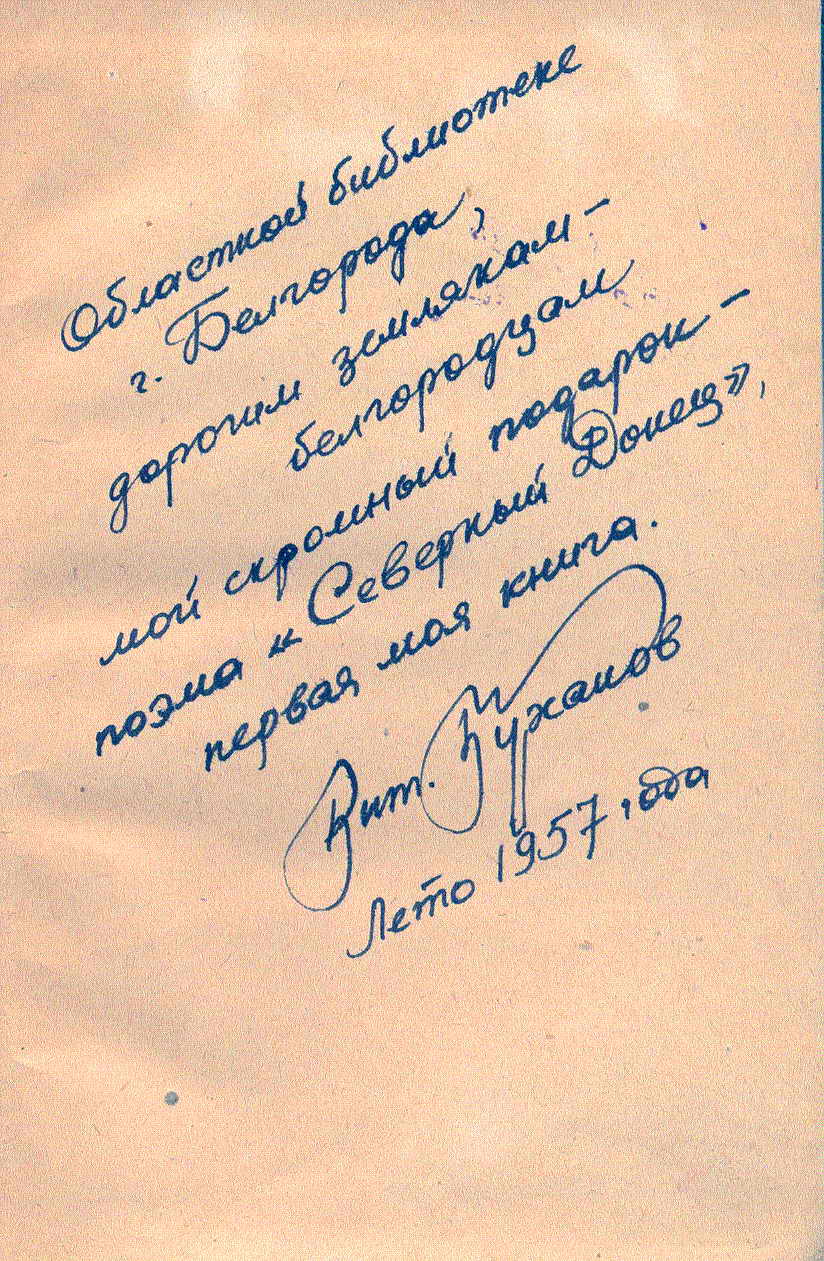 Областной библиотеке
г. Белгорода,
дорогим землякам –
белгородцам
мой скромный подарок –
поэма «Северный Донец»,
первая моя книга.
Вит. Буханов
Лето 1957 года